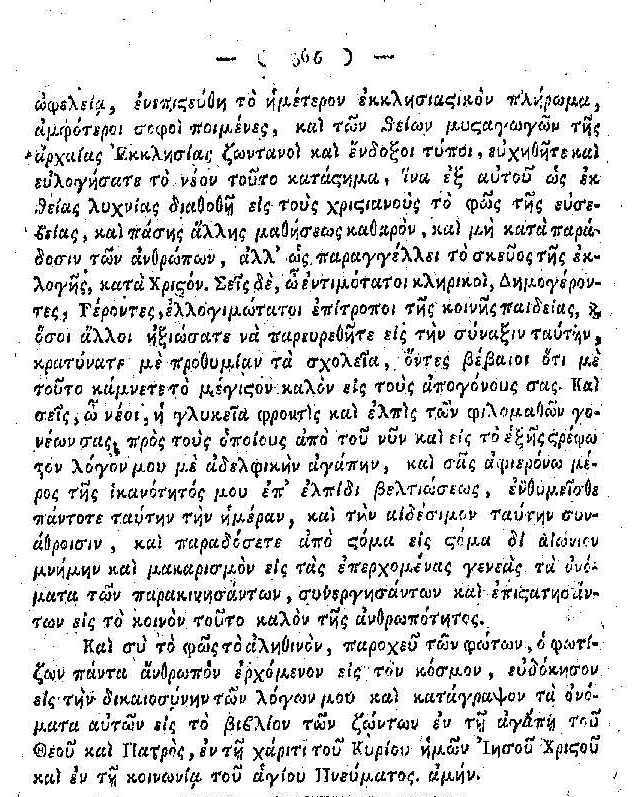 — ( 366 ) —
ὠφελείᾳ, ἐνεπιςεύθη τὸ ἡμέτερον ἐκκλησιαςικὸν πλήρωμα,
ἀμφότεροι σοφοὶ ποιμένες, καὶ τῶν θείων μυςαγωγῶν τῆς
ἀρχαίας Ἐκκλησίας ζωντανοὶ καὶ ἔνδοξοι τύποι, εὐχηθῆτε καὶ
εὐλογήσατε τὸ νέον τοῦτο κατάςημα, ἵνα ἐξ αὐτοῦ ὡς ἐκ
θείας λυχνίας διαδοθῇ εἰς τοὺς χριςιανοὺς τὸ φῶς τῆς εὐσε-
βείας, καὶ πάσης ἄλλης μαθήσεως καθαρὸν, καὶ μὴ κατὰ παρά-
δοσιν τῶν ἀνθρώπων, ἀλλ' ὡς παραγγέλλει τὸ σκεῦος τῆς ἐκ-
λογῆς, κατὰ Χριςόν. Σεῖς δὲ, ὦ ἐντιμότατοι κληρικοὶ, Δημογέρον-
τες, Γέροντες, ἐλλογιμώτατοι ἐπίτροποι τῆς κοινῆς παιδείας, ϗ
ὅσοι ἄλλοι ἠξιώσατε νὰ παρευρεθῆτε εἰς τὴν σύναξιν ταύτην,
κρατύνατε μὲ προθυμίαν τὰ σχολεῖα, ὄντες βέβαιοι ὅτι μὲ
τοῦτο κάμνετε τὸ μέγιςον καλὸν εἰς τοὺς ἀπογόνους σας. Καὶ
σεῖς, ὦ νέοι, ἡ γλυκεῖα φροντὶς καὶ ἐλπὶς τῶν φιλομαθῶν γο-
νέων σας, πρὸς τοὺς ὁποίους ἀπὸ τοῦ νῦν καὶ εἰς τὸ ἑξῆς ςρέφω
τον λόγον μου μὲ ἀδελφικὴν ἀγάπην, καὶ σᾶς ἀφιερόνω μέ-
ρος τῆς ἱκανότητός μου ἐπ' ἐλπίδι βελτιώσεως, ἐνθυμεῖσθε
πάντοτε ταύτην τὴν ἡμέραν, καὶ τὴν αἰδέσιμον ταύτην συν-
άθροισιν, καὶ παραδόσετε ἀπὸ ςόμα εἰς ςόμα δι αἰώνιον
μνήμην καὶ μακαρισμὸν εἰς τὰς ἐπερχομένας γενεὰς τὰ ὀνό-
ματα τῶν παρακινησάντων, συνεργησάντων καὶ ἐπιςατησάν-
των εἰς τὸ κοινὸν τοῦτο καλὸν τῆς ἀνθρωπότητος.
Καὶ σὺ τὸ φῶς τὸ ἀληθινὸν, παροχεῦ τῶν φώτων, ὁ φωτί-
ζων πάντα ἄνθρωπον ἐρχόμενον εἰς τὸν κόσμον, εὐδόκησον
εἰς τὴν δικαιοσύνην τῶν λόγων μου καὶ κατάγραψον τὰ ὀνό-
ματα αὐτῶν εἰς τὸ βιβλίον τῶν ζώντων ἐν τῇ ἀγάπῃ τοῦ
Θεοῦ καὶ Πατρὸς, ἐν τῇ χάριτι τοῦ Κυρίου ἡμῶν Ἰησοῦ Χριςοῦ
καὶ ἐν τῇ κοινωνίᾳ τοῦ ἁγίου Πνεύματος. ἀμήν.